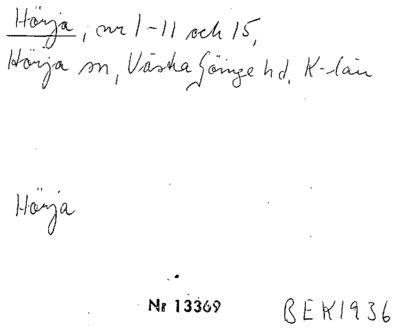 Hörja, nr 1-11 och 15,
Hörja sn, Västra Göinge hd, K-län
Hörja
Nr 13369
BEK1936